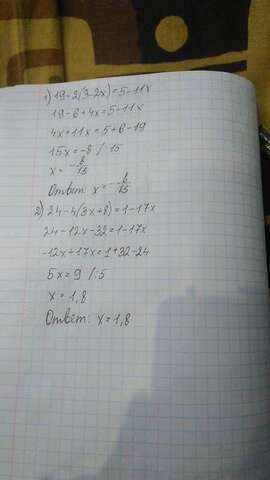 1) 19-2(3-2x)=5-11x
19-6+4x=5-11x
4x+11x=5+6-19
15x=-8 /:15
x=-8/15
Ответ: x=-8/15
2) 24-4(3x+8)=1-17x
24-12x-32=1-17x
-12x+17x=1+32-24
5x=9 /:5
x=1,8
Ответ: x=1,8